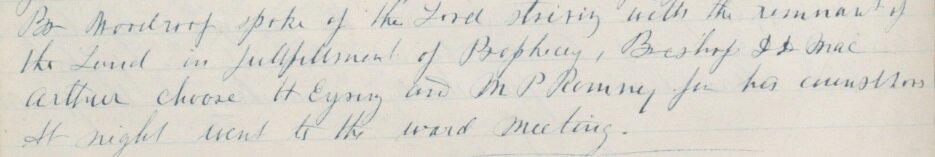 Br Woodroof spoke of the Lord striving with the remnant of
the Land in fulfillment of Prophecy, Bishop D D Mac
Arthur choose H Eyring and M P Romney for his counsellors
At night went to the ward meeting.